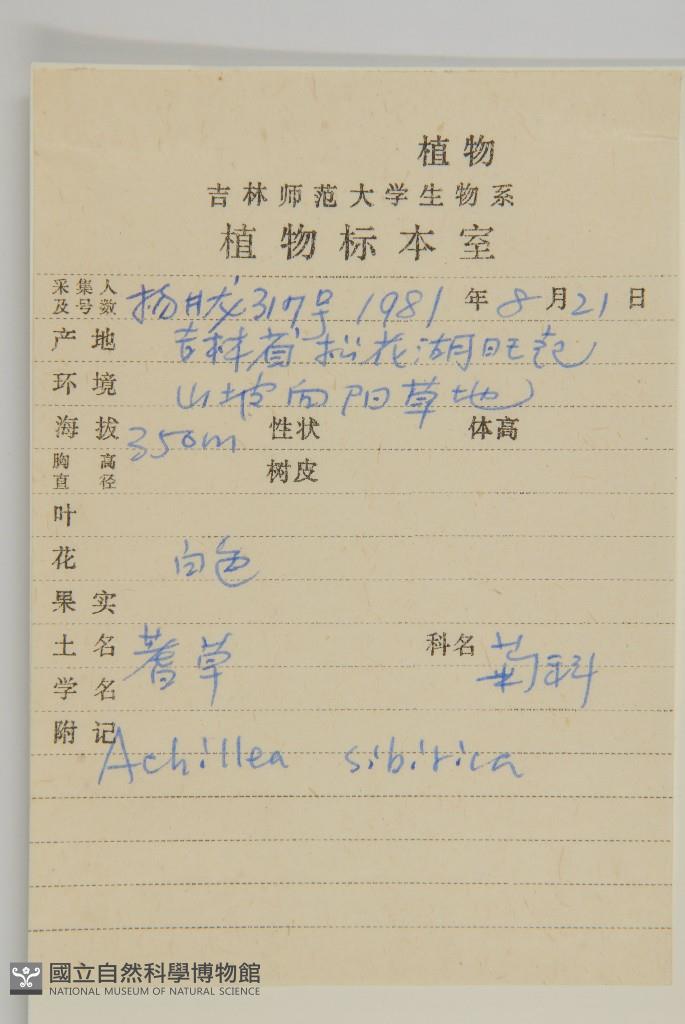 植物
吉林师范大学生物系
植物标本室
采集人及号数 317号 1981年8月21日
产地 吉林省松花湖旺起
环境 山坡向阳草地
海拔 350m 性状 体高
胸高直径 树皮
叶
花 白色
果实
土名 蓍草 科名 菊科
学名
附记
Achillea sibirica
國立自然科學博物館
NATIONAL MUSEUM OF NATURAL SCIENCE